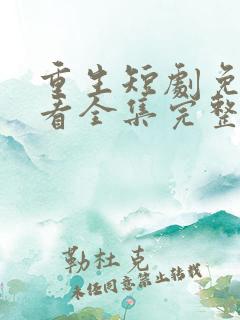 重生短劇免
看全集完整
勒杜克
未经同意禁止转载